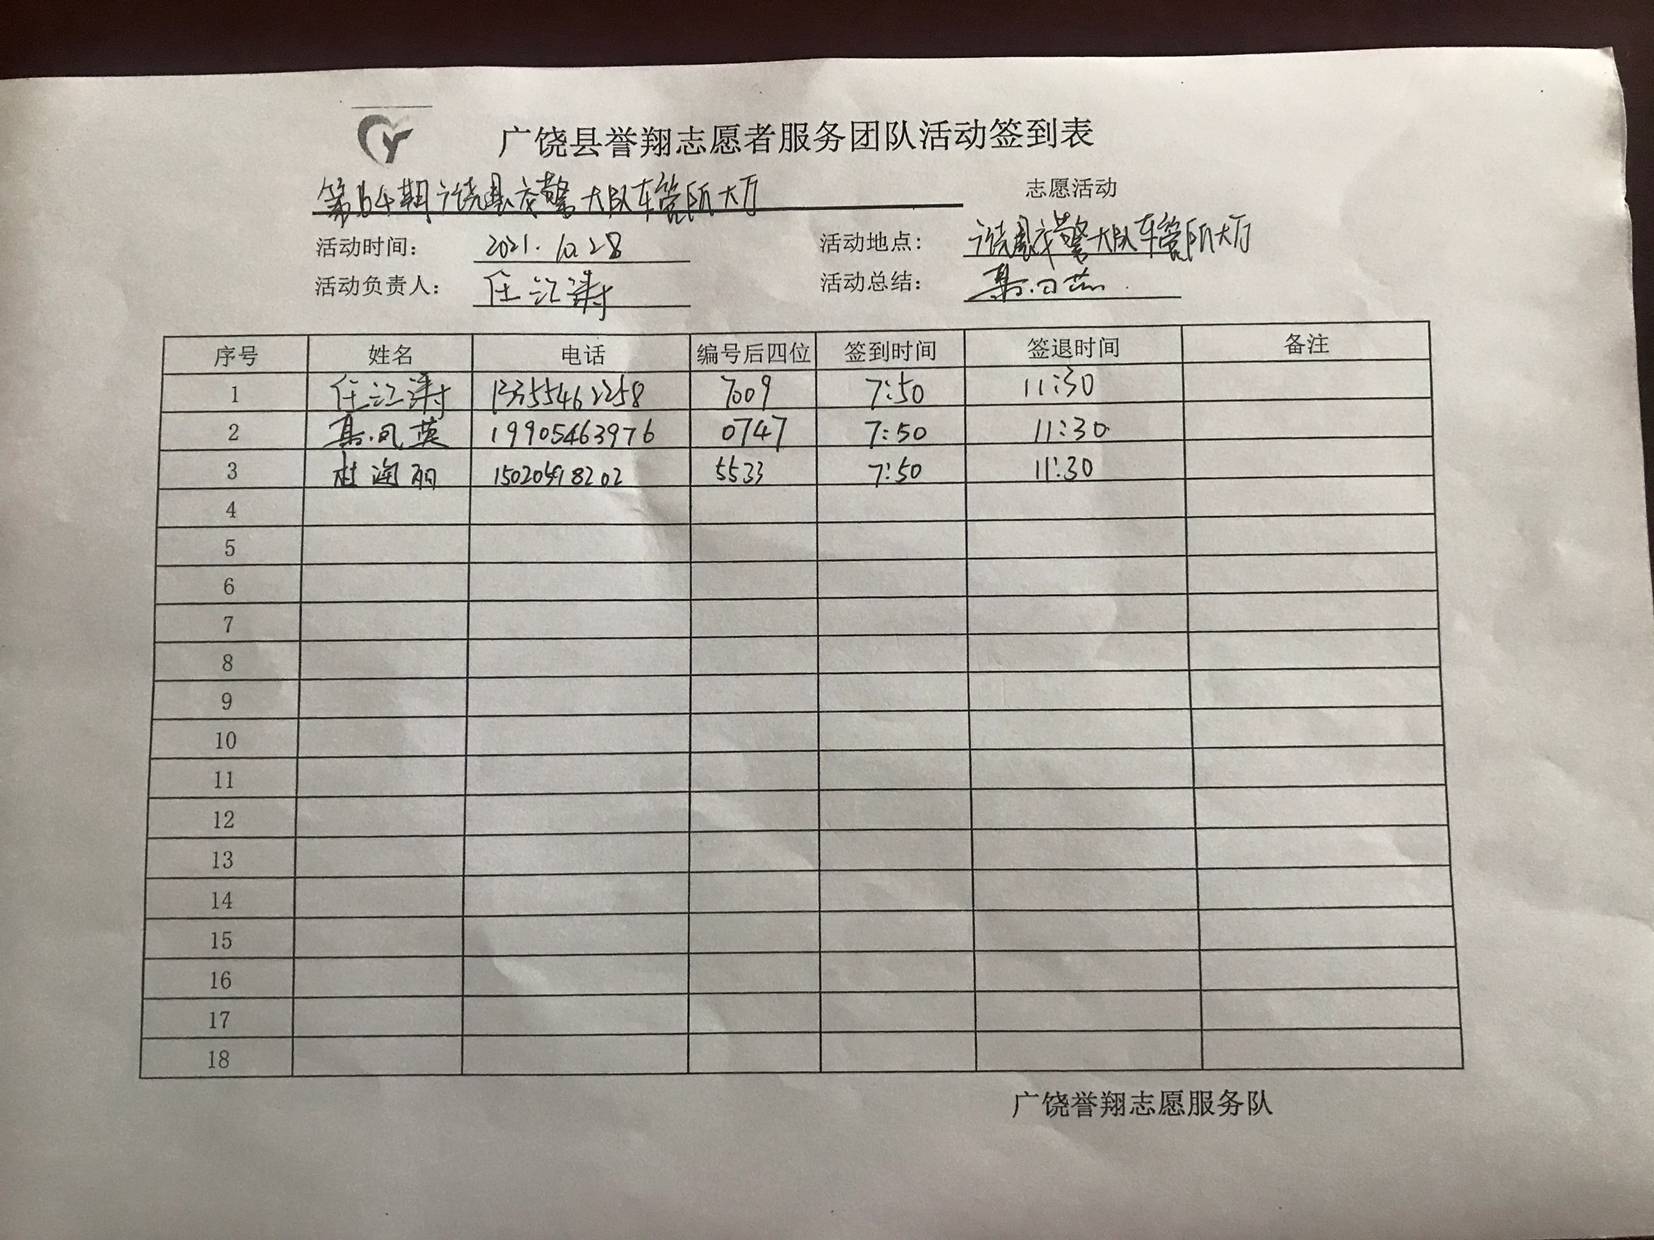 广饶县誉翔志愿者服务团队活动签到表
第64期广饶县交警大队车管所大厅 志愿活动
活动时间: 2021.10.28 活动地点: 广饶县交警大队车管所大厅
活动负责人: 任江涛 活动总结:
序号 姓名 电话 编号后四位 签到时间 签退时间 备注
1 任江涛 13355462258 7009 7:50 11:30
2 凤英 19905463976 0747 7:50 11:30
3 杜海丽 15020598202 5533 7:50 11:30
4
5
6
7
8
9
10
11
12
13
14
15
16
17
18
广饶誉翔志愿服务队